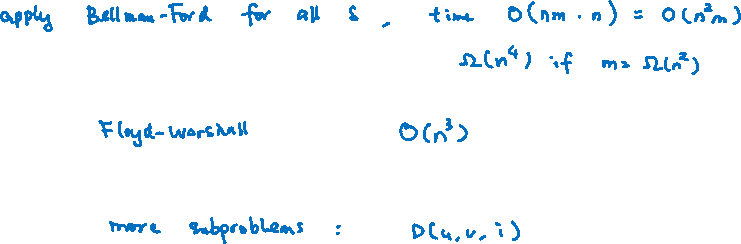 apply Bellman-Ford for all s, time O(nm·n) = O(n²m)
Ω(n⁴) if m = Ω(n²)
Floyd-Warshall O(n³)
more subproblems : D(u,v,i)